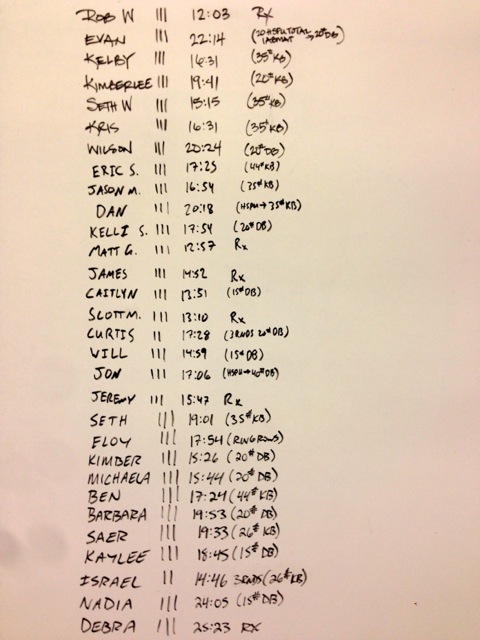 ROB W ||| 12:03 Rx
EVAN ||| 22:14 (20 HSPU TOTAL 1 ABMAT → 20# DB)
KELBY ||| 16:31 (35# KB)
KIMBERLEE ||| 19:41 (20# KB)
SETH W ||| 15:15 (35# KB)
KRIS ||| 16:31 (35# KB)
WILSON ||| 20:24 (20# DB)
ERIC S. ||| 17:25 (44# KB)
JASON M. ||| 16:54 (35# KB)
DAN ||| 20:18 (HSPU → 35# KB)
KELLI S. ||| 17:54 (20# DB)
MATT G. ||| 12:57 Rx
JAMES ||| 14:52 Rx
CAITLYN ||| 13:51 (15# DB)
SCOTT M. ||| 13:10 Rx
CURTIS || 17:28 (3 RNDS 20# DB)
WILL ||| 14:59 (15# DB)
JON ||| 17:06 (HSPU → 40# DB)
JEREMY ||| 15:47 Rx
SETH ||| 19:01 (35# KB)
ELOY ||| 17:54 (RING ROWS)
KIMBER ||| 15:26 (20# DB)
MICHAELA ||| 15:44 (20# DB)
BEN ||| 17:24 (44# KB)
BARBARA ||| 19:53 (20# DB)
SAER ||| 19:33 (26# KB)
KAYLEE ||| 18:45 (15# DB)
ISRAEL || 14:46 3RNDS (26# KB)
NADIA ||| 24:05 (15# DB)
DEBRA ||| 25:23 RX